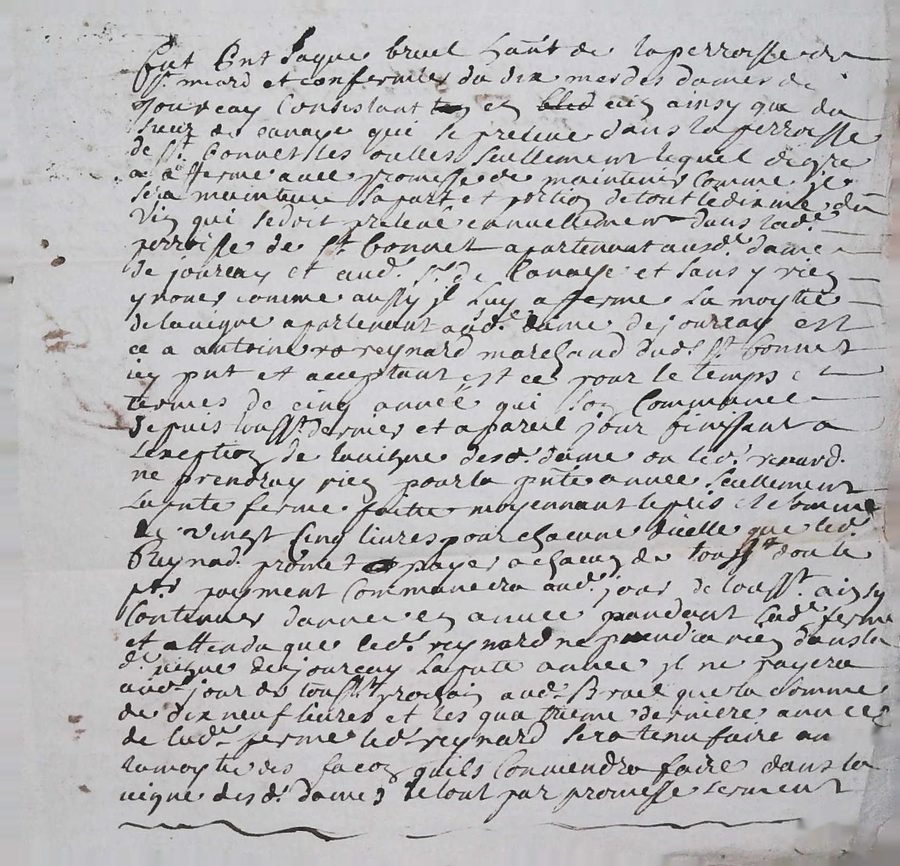 fut pnt Jaque bruel habnt de la perroisse de
st. mard et confermier du dixme des dames de
Jourcay Consistant en cin ainsy que du
sieur de sanaye qui se preleve dans la perroisse
de st. bonnet les oulles seullement lequel de gre
a afferme avec promesse de maintenir comme il
sera maintenu sa part et portion de tout le dixme du
vin qui se doit preleve annuellement dans lade.
perroisse de st. bonnet apartenant ausd. dame
de jourcay et aud. sr. de sanaye et sans y rien
ynover comme aussy il luy afferme la moytie
de la vigne apartenant aud. dame de jourcay est
ce a antoine reynard marchand dud. st. bonnet
icy pnt et acceptant est ce pour le temps et
termes de cinq année qui son Commancé
depuis toussts. dernier et a pareil jour finissant a
lexeption de la vigne desd. dame ou led. renard
ne prendra rien pour la pnte année seullement
la pnte ferme faitte moyennant le pris et somme
de vingt cinq livres pour chacune duelle que led.
Reynad. promet payer a chacun de toussts dont le
pr payment Commancera aud. jour de tousst. ainsy
Continuer dannee en annee pandant lade. ferme
et attendu que led. reynard ne prendra rien dans la
d. vigne de jourcay la pnte année il ne payera
aud. jour de tousst. prochain aud. Bruel que la somme
de dix neuf livres et les quatrieme derniere année
de lad. ferme led. reynard sera tenu faire au
la moytie des facon quils Conviendra faire dans la
vigne desd. dames le tout par promesse serment